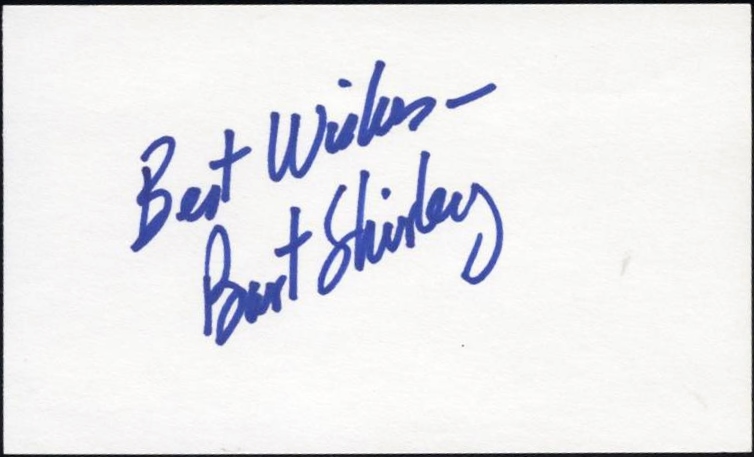 Best Wishes –
Bart Shirley